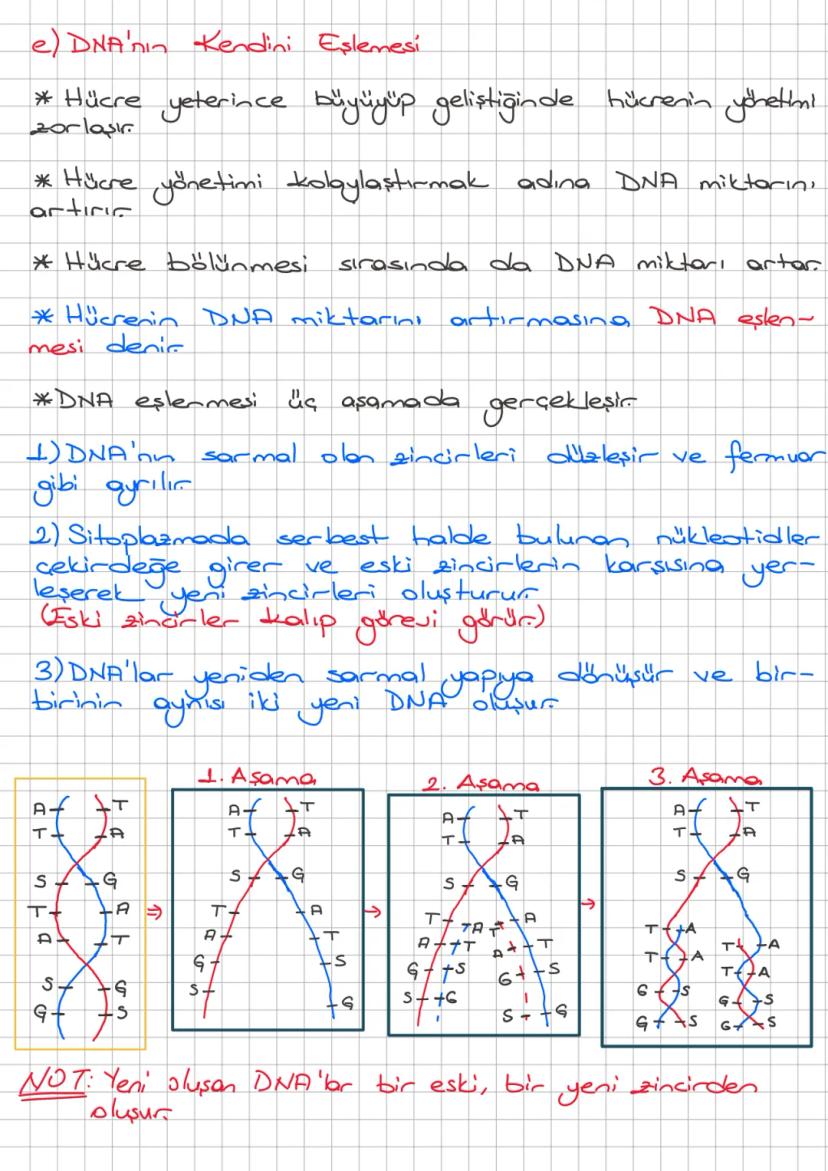 e) DNA'nın Kendini Eşlemesi
* Hücre yeterince büyüyüp geliştiğinde hücrenin yönetimi
zorlaşır.
* Hücre yönetimi kolaylaştırmak adına DNA miktarını
artırır.
* Hücre bölünmesi sırasında da DNA miktarı artar.
* Hücrenin DNA miktarını artırmasına DNA eşlen-
mesi denir.
*DNA eşlenmesi üç aşamada gerçekleşir.
1) DNA'nın sarmal olan zincirleri düzleşir ve fermuar
gibi ayrılır.
2) Sitoplazmada serbest halde bulunan nükleotidler
çekirdeğe girer ve eski zincirlerin karşısına yer-
leşerek yeni zincirleri oluşturur.
(Eski zincirler kalıp görevi görür.)
3) DNA'lar yeniden sarmal yapıya dönüşür ve bir-
birinin aynısı iki yeni DNA oluşur.
1. Aşama 2. Aşama 3. Aşama
A T
T A
S G
T A
A T
S G
G S
A T
T A
S G
T A
A T
G S
S G
A T
T A
S G
T A T A
A T A T
G S G S
S G S G
A T
T A
S G
T A T A
T A T A
G S G S
G S G S
NOT: Yeni oluşan DNA'lar bir eski, bir yeni zincirden
oluşur.